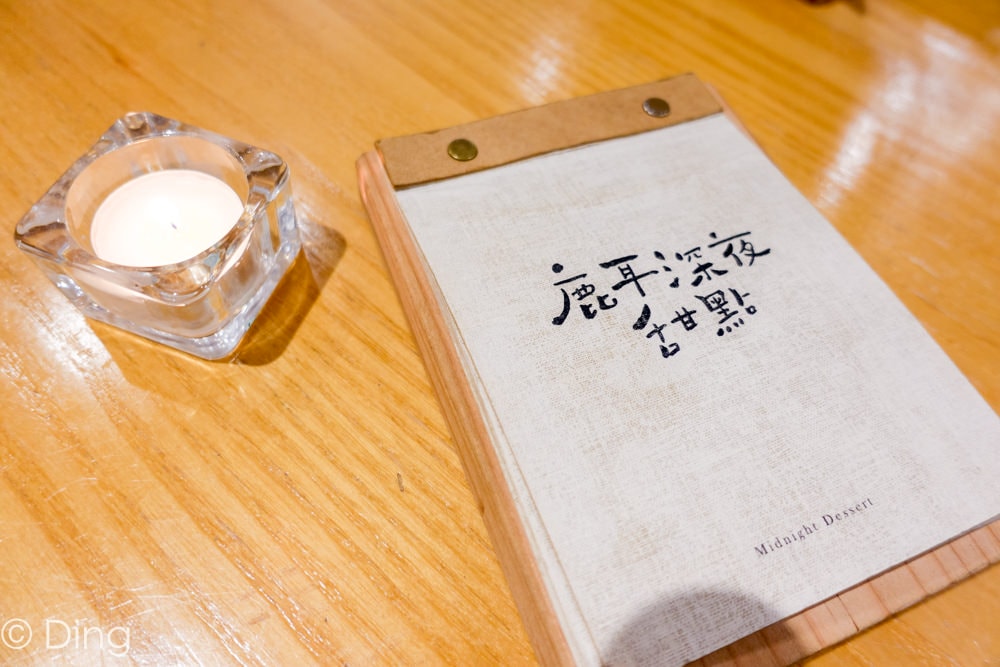 鹿耳深夜
甜點
Midnight Dessert
© Ding